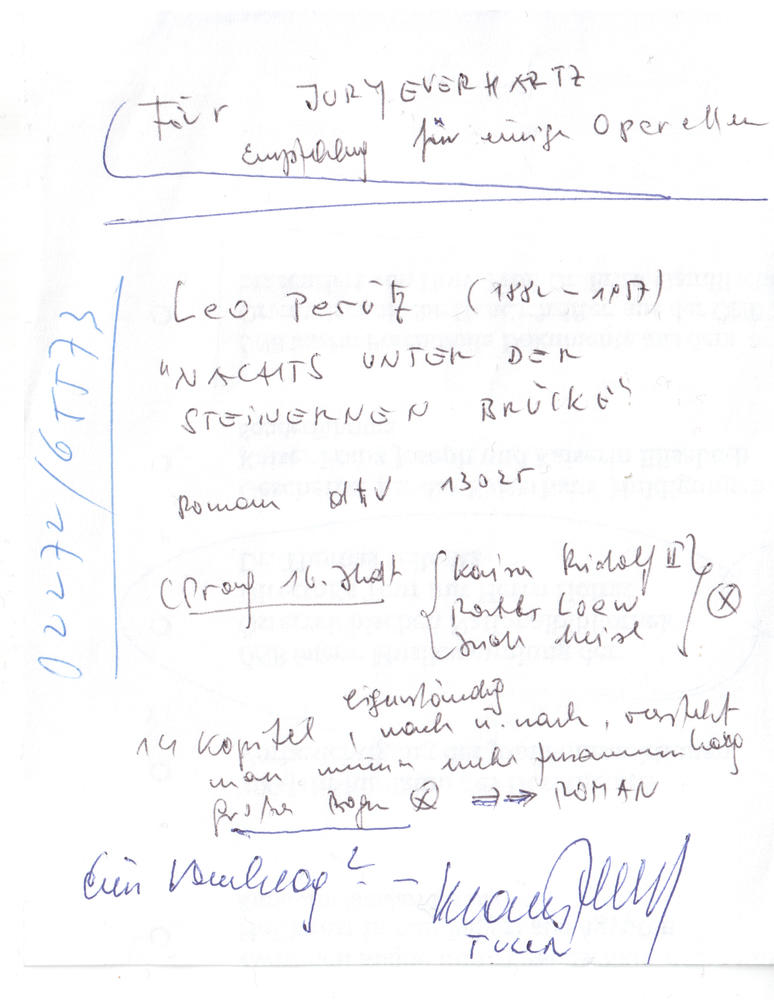 Für JURY EVERHARTZ
Empfehlung für einige Operellen
Leo Perutz (1882 - 1957)
"NACHTS UNTER DER
STEINERNEN BRÜCKE"
Roman dtV 13025
(Prag 16. Jhdt { Kaiser Rudolf II
Rabbi LOEW
Mordechai Meisl
02272/61573
eigenständig
14 Kapitel, nach u. nach, versteht
man immer mehr Zusammenhang
großer Bogen ⊗ ⇒⇒ ROMAN
Ein Vorschlag? – Klaus
TULLN